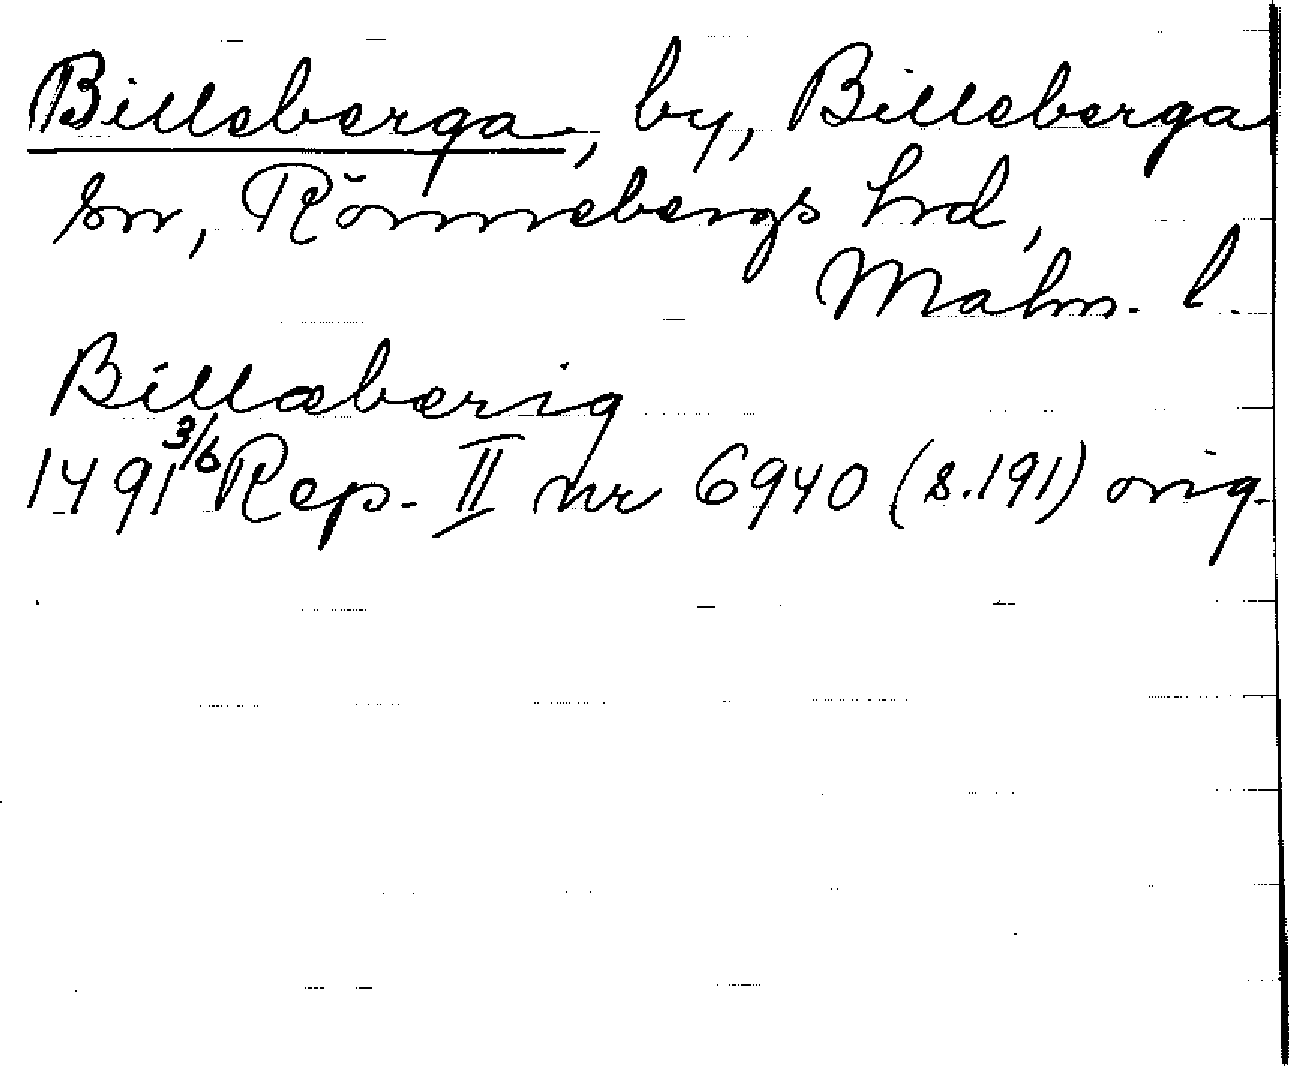 Billeberga, by, Billeberga
sn, Rönnebergs hrd,
Malm. l.
Billæbærig
1491 3/6 Rep. II nr 6940 (s.191) orig.